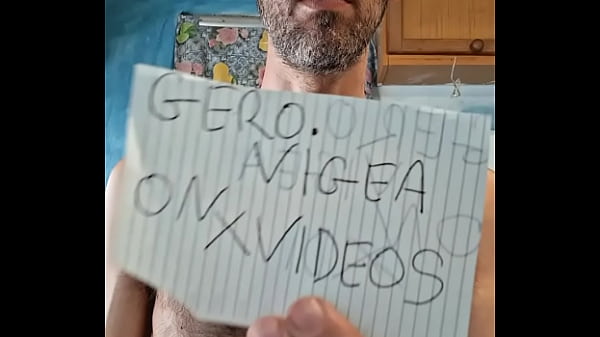 GERO.
NIGEA
ON XVIDEOS